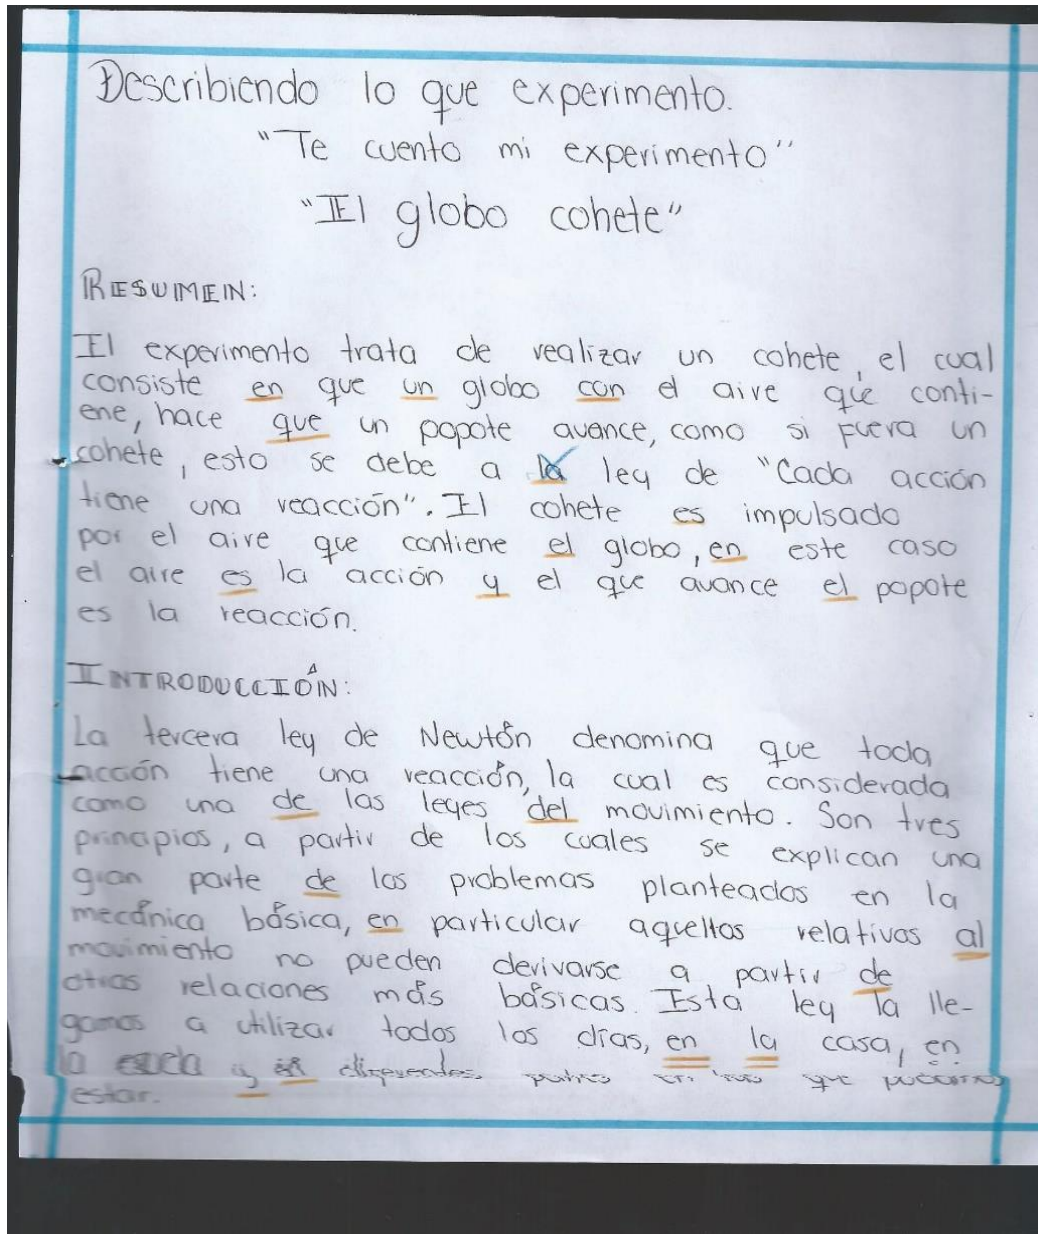 Describiendo lo que experimento.
"Te cuento mi experimento"
"El globo cohete"
RESUMEN:
El experimento trata de realizar un cohete, el cual
consiste en que un globo con el aire que conti-
ene, hace que un popote avance, como si fuera un
cohete, esto se debe a la ley de "Cada acción
tiene una reacción". El cohete es impulsado
por el aire que contiene el globo, en este caso
el aire es la acción y el que avance el popote
es la reacción.
INTRODUCCIÓN:
La tercera ley de Newtón denomina que toda
acción tiene una reacción, la cual es considerada
como una de las leyes del movimiento. Son tres
principios, a partir de los cuales se explican una
gran parte de los problemas planteados en la
mecánica básica, en particular aquellos relativos al
movimiento no pueden derivarse a partir de
otras relaciones más básicas. Esta ley la lle-
gamos a utilizar todos los días, en la casa, en
la escuela y en diferentes en que podamos
estar.